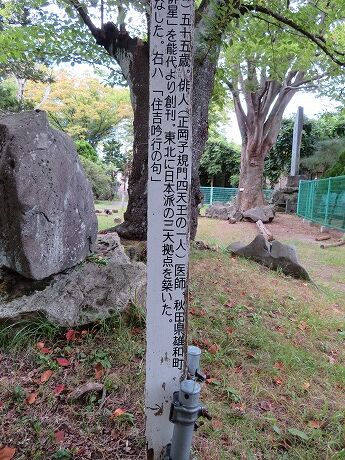 )五十五歳。俳人(正岡子規門四天王の一人)医師。秋田県雄和町
俳星」を能代より創刊、東北に日本派の三大拠点を築いた。
なした。右ハ「住吉吟行の句」